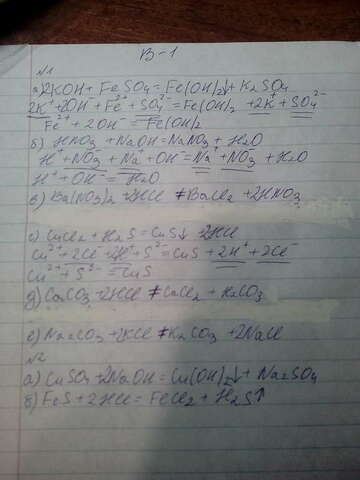 В-1
№1
а) 2KOH + FeSO4 = Fe(OH)2↓ + K2SO4
2K⁺ + 2OH⁻ + Fe²⁺ + SO4²⁻ = Fe(OH)2 + 2K⁺ + SO4²⁻
Fe²⁺ + 2OH⁻ = Fe(OH)2
б) HNO3 + NaOH = NaNO3 + H2O
H⁺ + NO3⁻ + Na⁺ + OH⁻ = Na⁺ + NO3⁻ + H2O
H⁺ + OH⁻ = H2O
в) Ba(NO3)2 + 2HCl ≠ BaCl2 + 2HNO3
с) CuCl2 + H2S = CuS↓ 2HCl
Cu²⁺ + 2Cl⁻ + 2H⁺ + S²⁻ = CuS + 2H⁺ + 2Cl⁻
Cu²⁺ + S²⁻ = CuS
д) CaCO3 + 2HCl ≠ CaCl2 + H2CO3
е) Na2CO3 + 2KCl ≠ K2CO3 + 2NaCl
№2
а) CuSO4 + 2NaOH = Cu(OH)2↓ + Na2SO4
б) FeS + 2HCl = FeCl2 + H2S↑